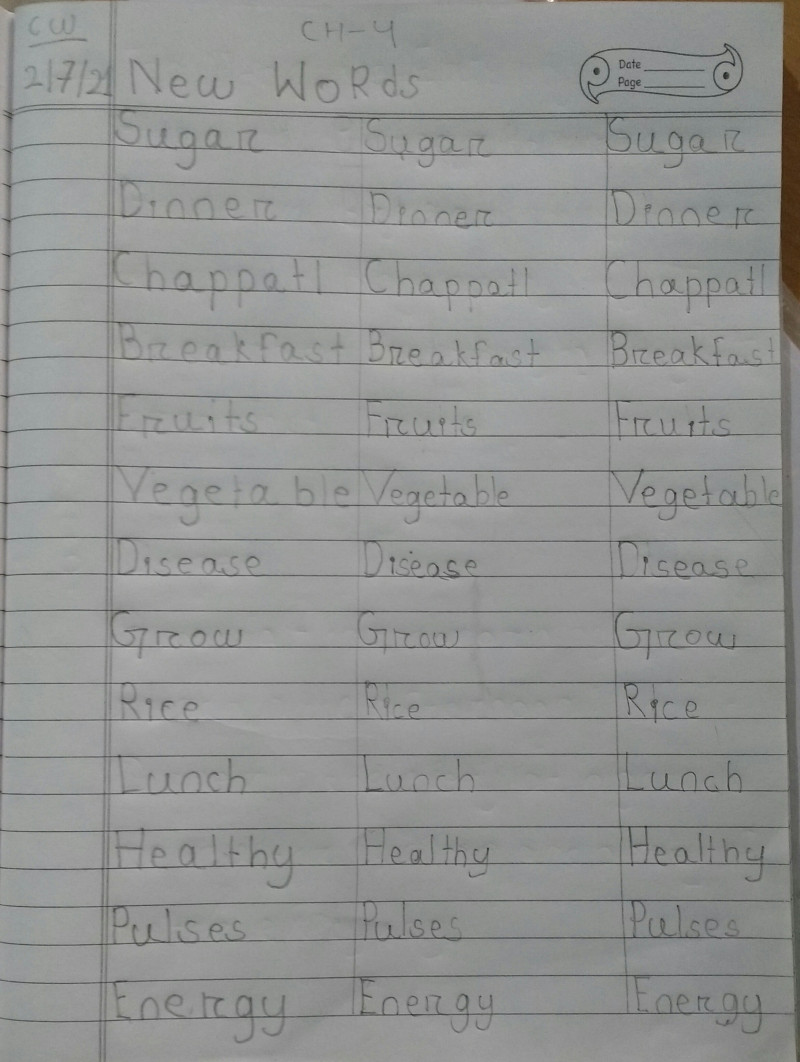 CW CH-4
2/7/21 New WoRds Date
Page
Sugar Sugar Sugar
Dinner Dinner Dinner
Chappati Chappati Chappati
Breakfast Breakfast Breakfast
Fruits Fruits Fruits
Vegetable Vegetable Vegetable
Disease Disease Disease
Grow Grow Grow
Rice Rice Rice
Lunch Lunch Lunch
Healthy Healthy Healthy
Pulses Pulses Pulses
Energy Energy Energy